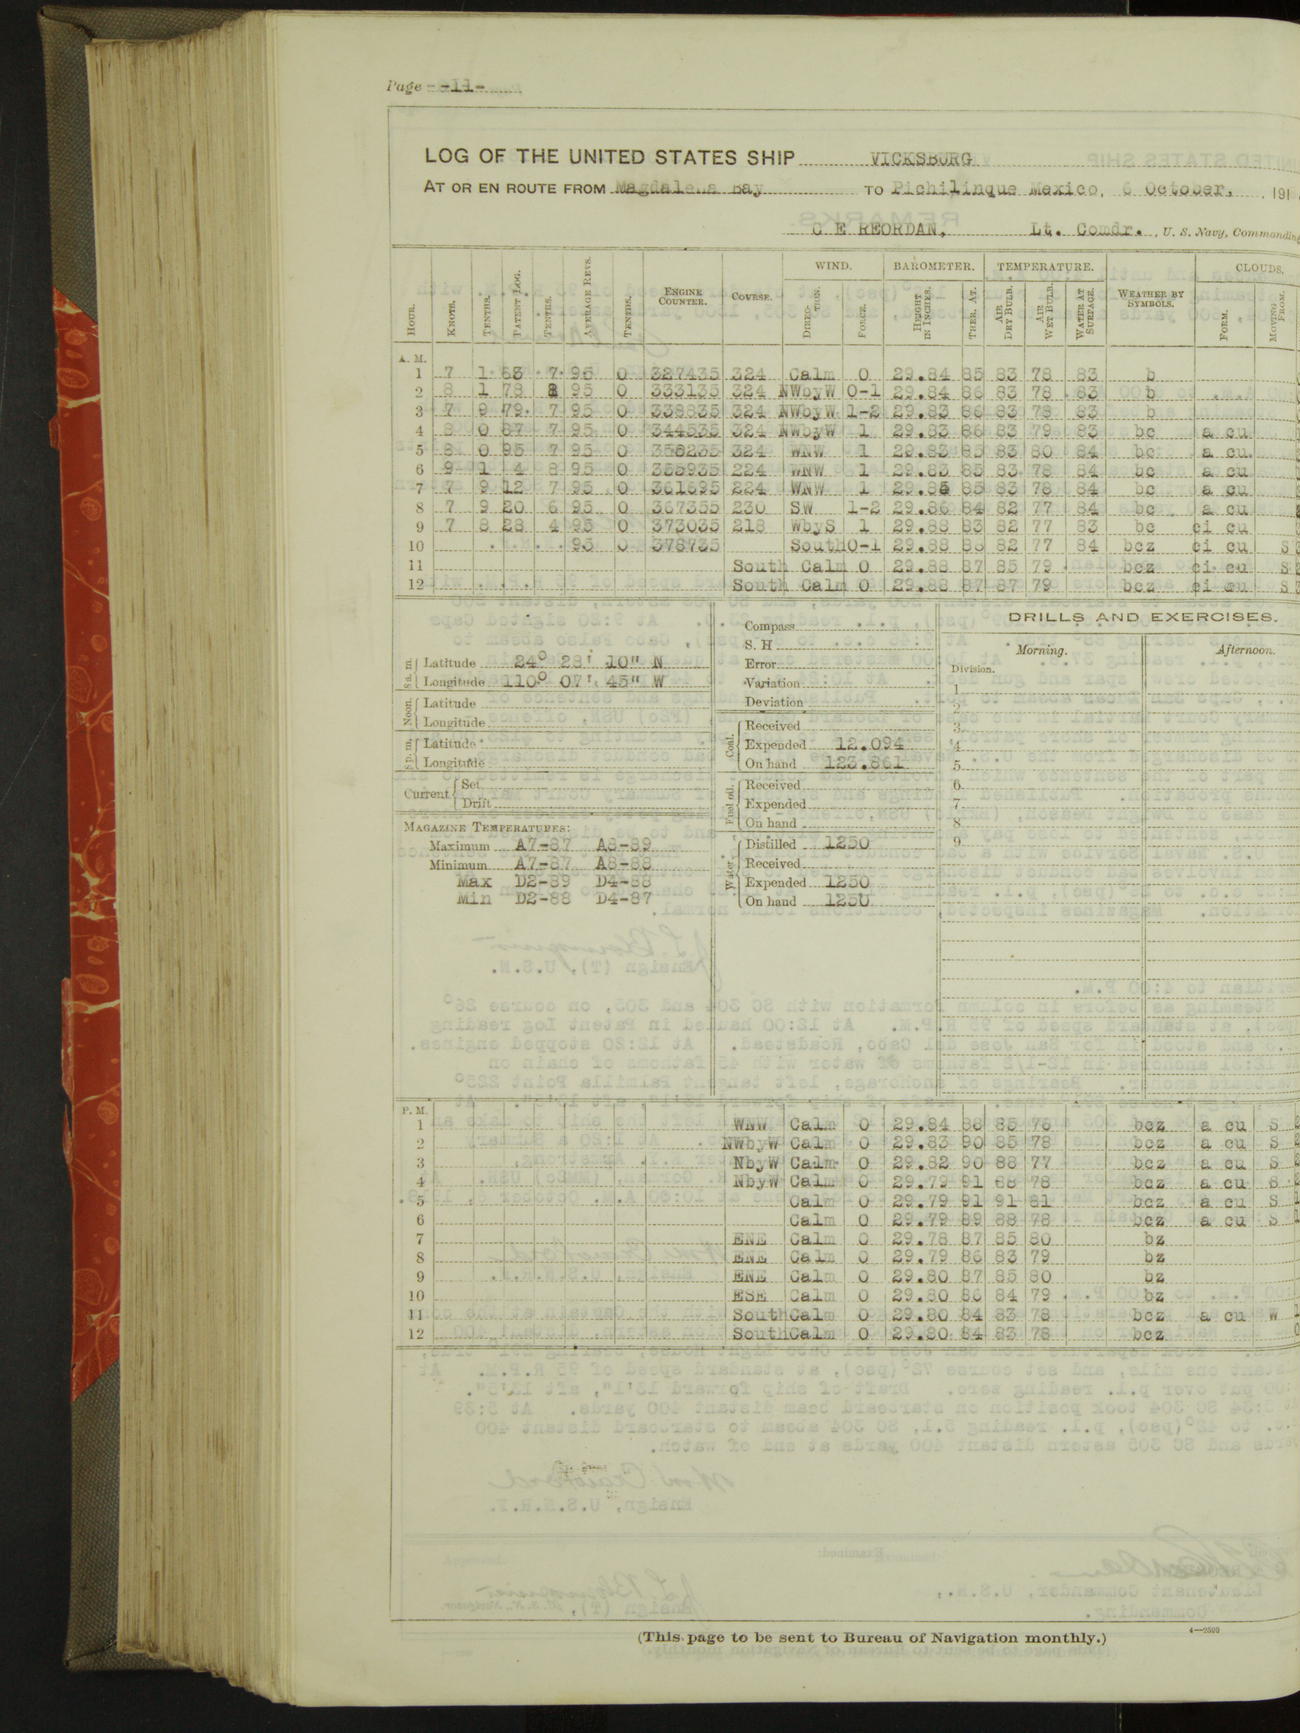 Page -11-
LOG OF THE UNITED STATES SHIP VICKSBURG
AT OR EN ROUTE FROM Magdalena Bay TO Pichilinque Mexico, 6 October, 191
C E REORDAN, Lt. Comdr., U. S. Navy, Commanding
HOUR. KNOTS. TENTHS. PATENT LOG. TENTHS. AVERAGE REVS. TENTHS. ENGINE COUNTER. COURSE. WIND. DIRECTION. FORCE. BAROMETER. HEIGHT IN INCHES. THER. AT. TEMPERATURE. AIR DRY BULB. AIR WET BULB. WATER AT SURFACE. WEATHER BY SYMBOLS. CLOUDS, FORM. MOVING FROM.
A. M.
1 7 1 63 7 95 0 327435 324 Calm 0 29.84 85 83 78 83 b
2 8 1 78 95 0 333135 324 NWbyW 0-1 29.84 86 83 78 83 b
3 7 9 79 7 95 0 338835 324 NWbyW 1-2 29.83 86 83 78 83 b
4 8 0 87 7 95 0 344535 324 NWbyW 1 29.83 86 83 79 83 bc a cu
5 8 0 95 7 95 0 350235 324 WNW 1 29.83 85 83 80 84 bc a cu.
6 9 1 4 8 95 0 355935 224 WNW 1 29.83 85 83 78 84 bc a cu
7 7 9 12 7 95 0 361695 224 WNW 1 29.85 85 83 78 84 bc a cu
8 7 9 20 6 95 0 367355 230 SW 1-2 29.86 84 82 77 84 bc a cu
9 7 8 28 4 95 0 373035 218 WbyS 1 29.88 83 82 77 83 bc ci cu
10 95 0 378735 South 0-1 29.88 86 82 77 84 bcz ci cu S
11 South Calm 0 29.88 87 85 79 bcz ci cu S
12 South Calm 0 29.88 87 87 79 bcz ci cu S
8 a. m. Latitude 24° 28' 10" N
Longitude 110° 07' 45" W
Noon. Latitude
Longitude
8 p. m. Latitude
Longitude
Current Set
Drift
MAGAZINE TEMPERATURES:
Maximum A7-87 A8-89
Minimum A7-87 A8-88
Max D2-89 D4-88
Min D2-88 D4-87
Compass
S. H
Error
Variation
Deviation
Coal. Received
Expended 12.094
On hand 123.861
Fuel oil. Received
Expended
On hand
Water. Distilled 1250
Received
Expended 1250
On hand 1250
DRILLS AND EXERCISES.
Morning. Afternoon.
Division.
1
2
3
4
5
6
7
8
9
P. M.
1 WNW Calm 0 29.84 88 85 76 bcz a cu S
2 NWbyW Calm 0 29.83 90 85 78 bcz a cu S
3 NbyW Calm 0 29.82 90 88 77 bcz a cu S
4 NbyW Calm 0 29.79 91 88 78 bcz a cu S
5 Calm 0 29.79 91 91 81 bcz a cu S
6 Calm 0 29.79 89 88 78 bcz a cu S
7 ENE Calm 0 29.78 87 85 80 bz
8 ENE Calm 0 29.79 86 83 79 bz
9 ENE Calm 0 29.80 87 85 80 bz
10 ESE Calm 0 29.80 86 84 79 bz
11 South Calm 0 29.80 84 83 78 bcz a cu W
12 South Calm 0 29.80 84 83 78 bcz
(This page to be sent to Bureau of Navigation monthly.)